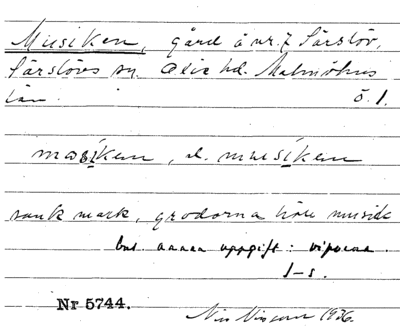 Musiken, gård å nr. 7 Särslöv,
Särslövs sn. Oxie hd. Malmöhus
län. ö. 1.
musiken, el. musiken
sank mark, grodorna höll musik
enl. annan uppgift: viporna.
1-s.
Nr 5744.
Nils 1936.